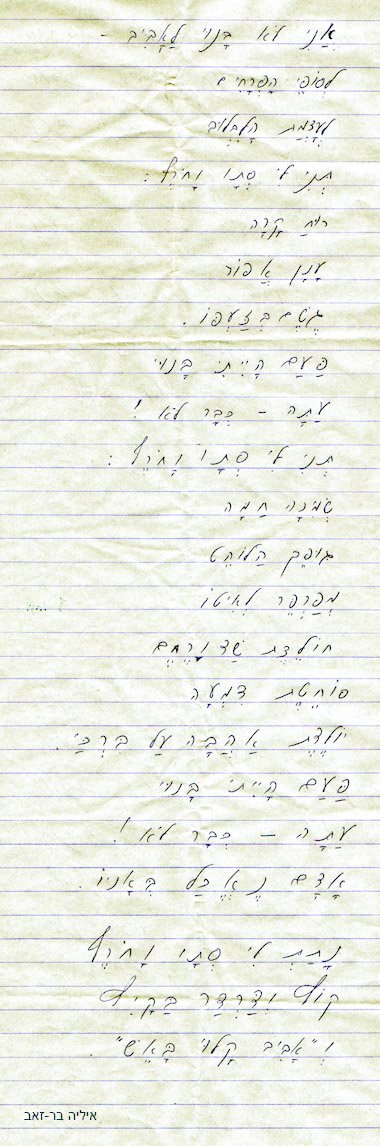 אֲנִי לֹא בָּנוּי לְאָבִיב -
לְסוּפֵי הַפְּרָחִים
לְעָצְמַת הַלַּבְלוּב
תְּנִי לִי סְתָו וָחֹרֶף:
רוּחַ קָרָה
עָנָן אָפוֹר
גֶּשֶׁם בְּזַעְפּוֹ.
פַּעַם הָיִיתִי בָּנוּי
עַתָּה - כְּבָר לֹא!
תְּנִי לִי סְתָו וָחֹרֶף:
שְׂמִיכָה חַמָּה
גּוּפֵךְ הַלּוֹהֵט
מְפַרְפֵּר לְאִיטוֹ
חוֹלֶצֶת שַׁד וָרֶחֶם
סוֹחֶטֶת דִּמְעָה
יוֹלֶדֶת אַהֲבָה עַל בִּרְכַּי.
פַּעַם הָיִיתִי בָּנוּי
עַתָּה - כְּבָר לֹא!
אָדָם נֶאֱכָל בְּאָנָיו.
נָתַתְּ לִי סְתָו וָחֹרֶף
קוֹץ וְדַרְדַּר בַּקַּיִץ
וְ"אָבִיב קָלוּי בָּאֵשׁ".
איליה בר-זאב